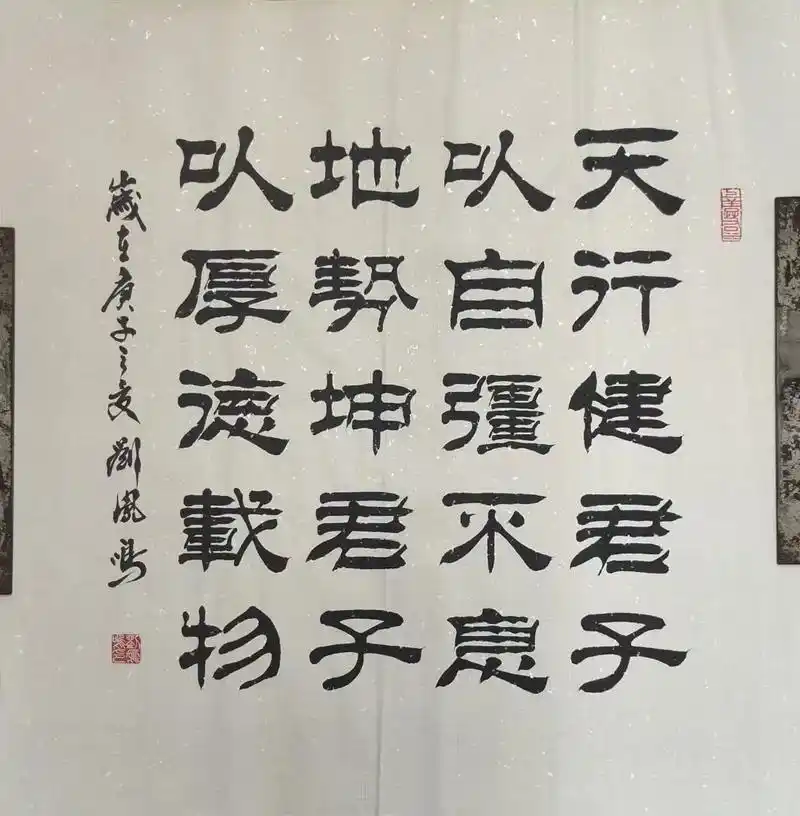 天行健君子
以自彊不息
地勢坤君子
以厚德載物
歲在庚子之夏劉鳳鳴